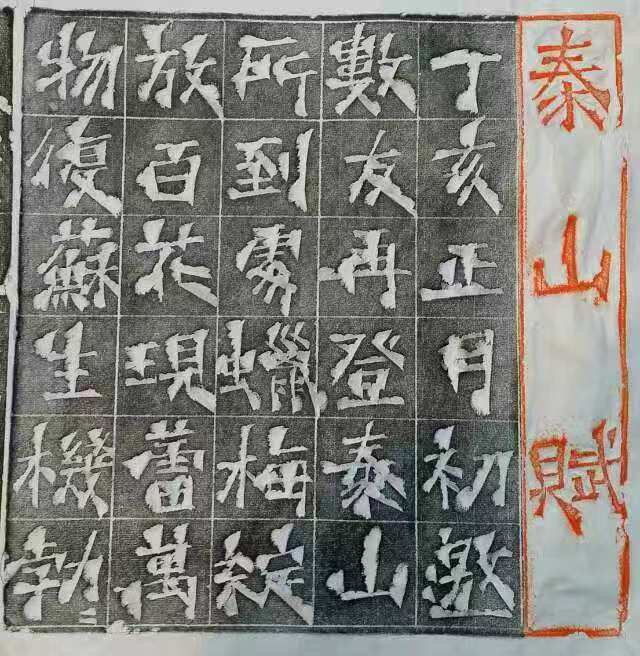 泰山賦
丁亥正月初邀
數友再登泰山
所到處蠟梅綻
放百花現蕾萬
物復蘇生機勃〻